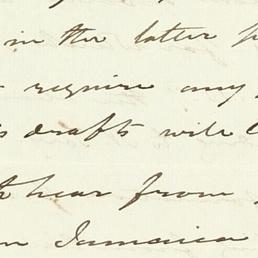 in the latter
require any
drafts will
hear from
Jamaica